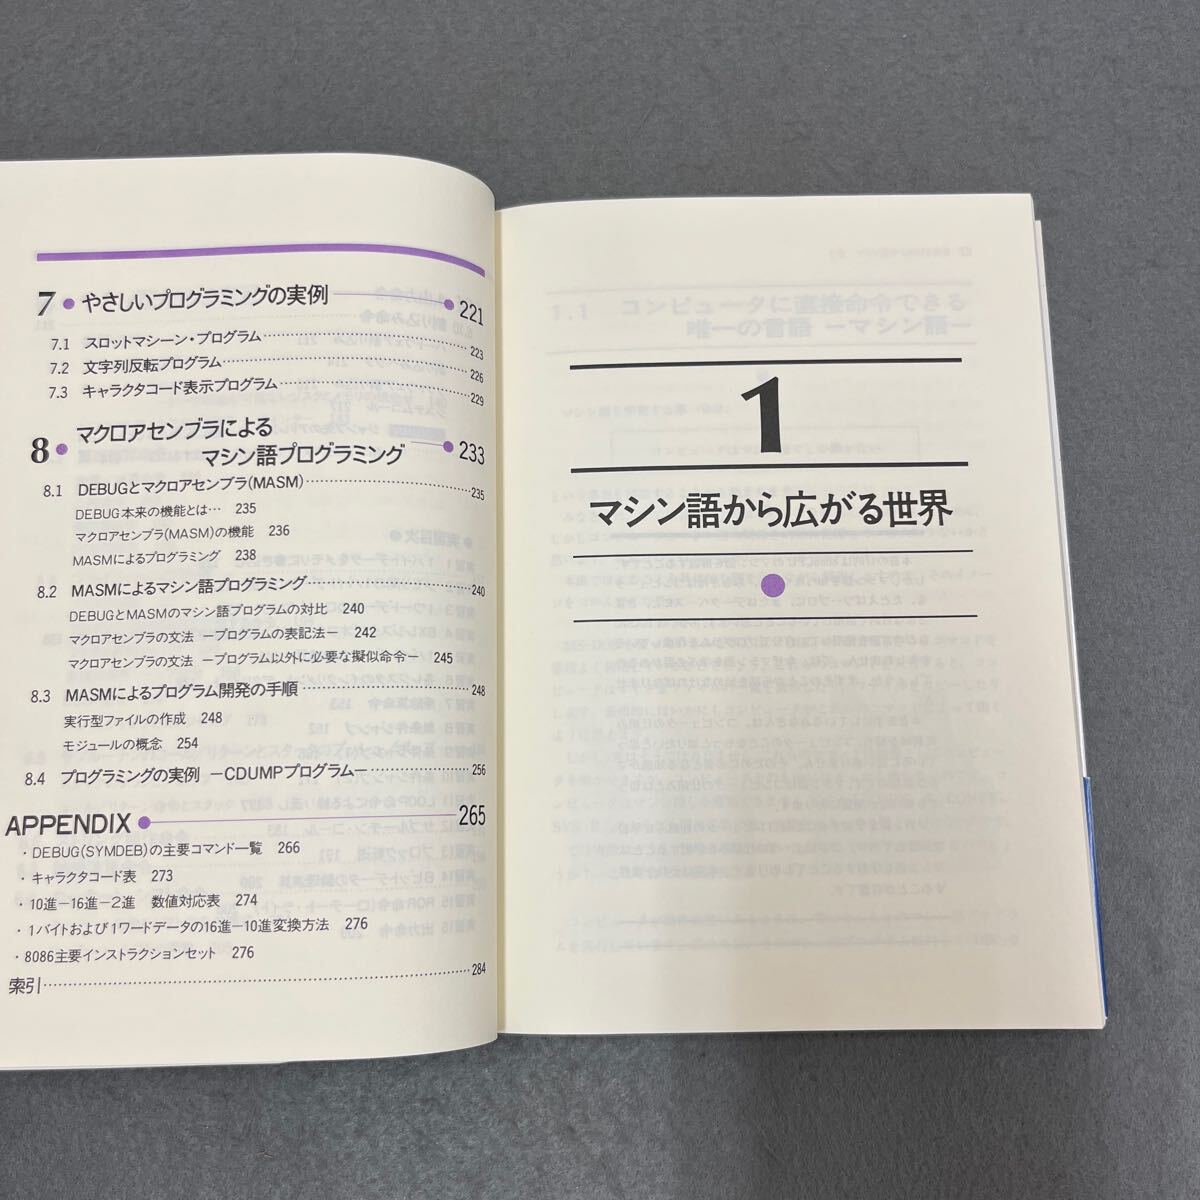 7 ● やさしいプログラミングの実例 221
7.1 スロットマシーン・プログラム 223
7.2 文字列反転プログラム 226
7.3 キャラクタコード表示プログラム 229
8 ● マクロアセンブラによる
マシン語プログラミング 233
8.1 DEBUGとマクロアセンブラ(MASM) 235
DEBUG本来の機能とは… 235
マクロアセンブラ(MASM)の機能 236
MASMによるプログラミング 238
8.2 MASMによるマシン語プログラミング 240
DEBUGとMASMのマシン語プログラムの対比 240
マクロアセンブラの文法 －プログラムの表記法－ 242
マクロアセンブラの文法 －プログラム以外に必要な擬似命令－ 245
8.3 MASMによるプログラム開発の手順 248
実行型ファイルの作成 248
モジュールの概念 254
8.4 プログラミングの実例 －CDUMPプログラム－ 256
APPENDIX 265
・DEBUG(SYMDEB)の主要コマンド一覧 266
・キャラクタコード表 273
・10進－16進－2進 数値対応表 274
・1バイトおよび1ワードデータの16進－10進変換方法 276
・8086主要インストラクションセット 276
索引 284
1
マシン語から広がる世界